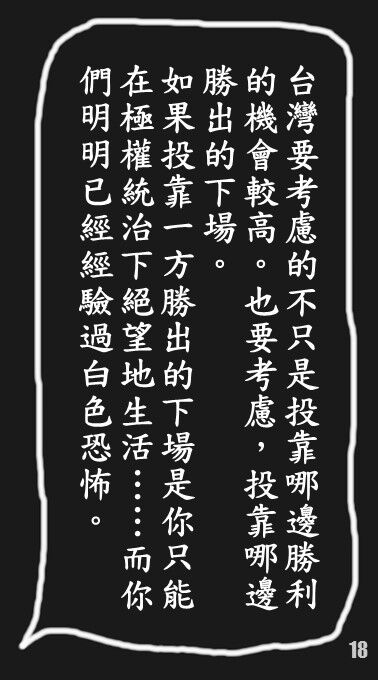 台灣要考慮的不只是投靠哪邊勝利
的機會較高。也要考慮，投靠哪邊
勝出的下場。
如果投靠一方勝出的下場是你只能
在極權統治下絕望地生活……而你
們明明已經經驗過白色恐怖。
18